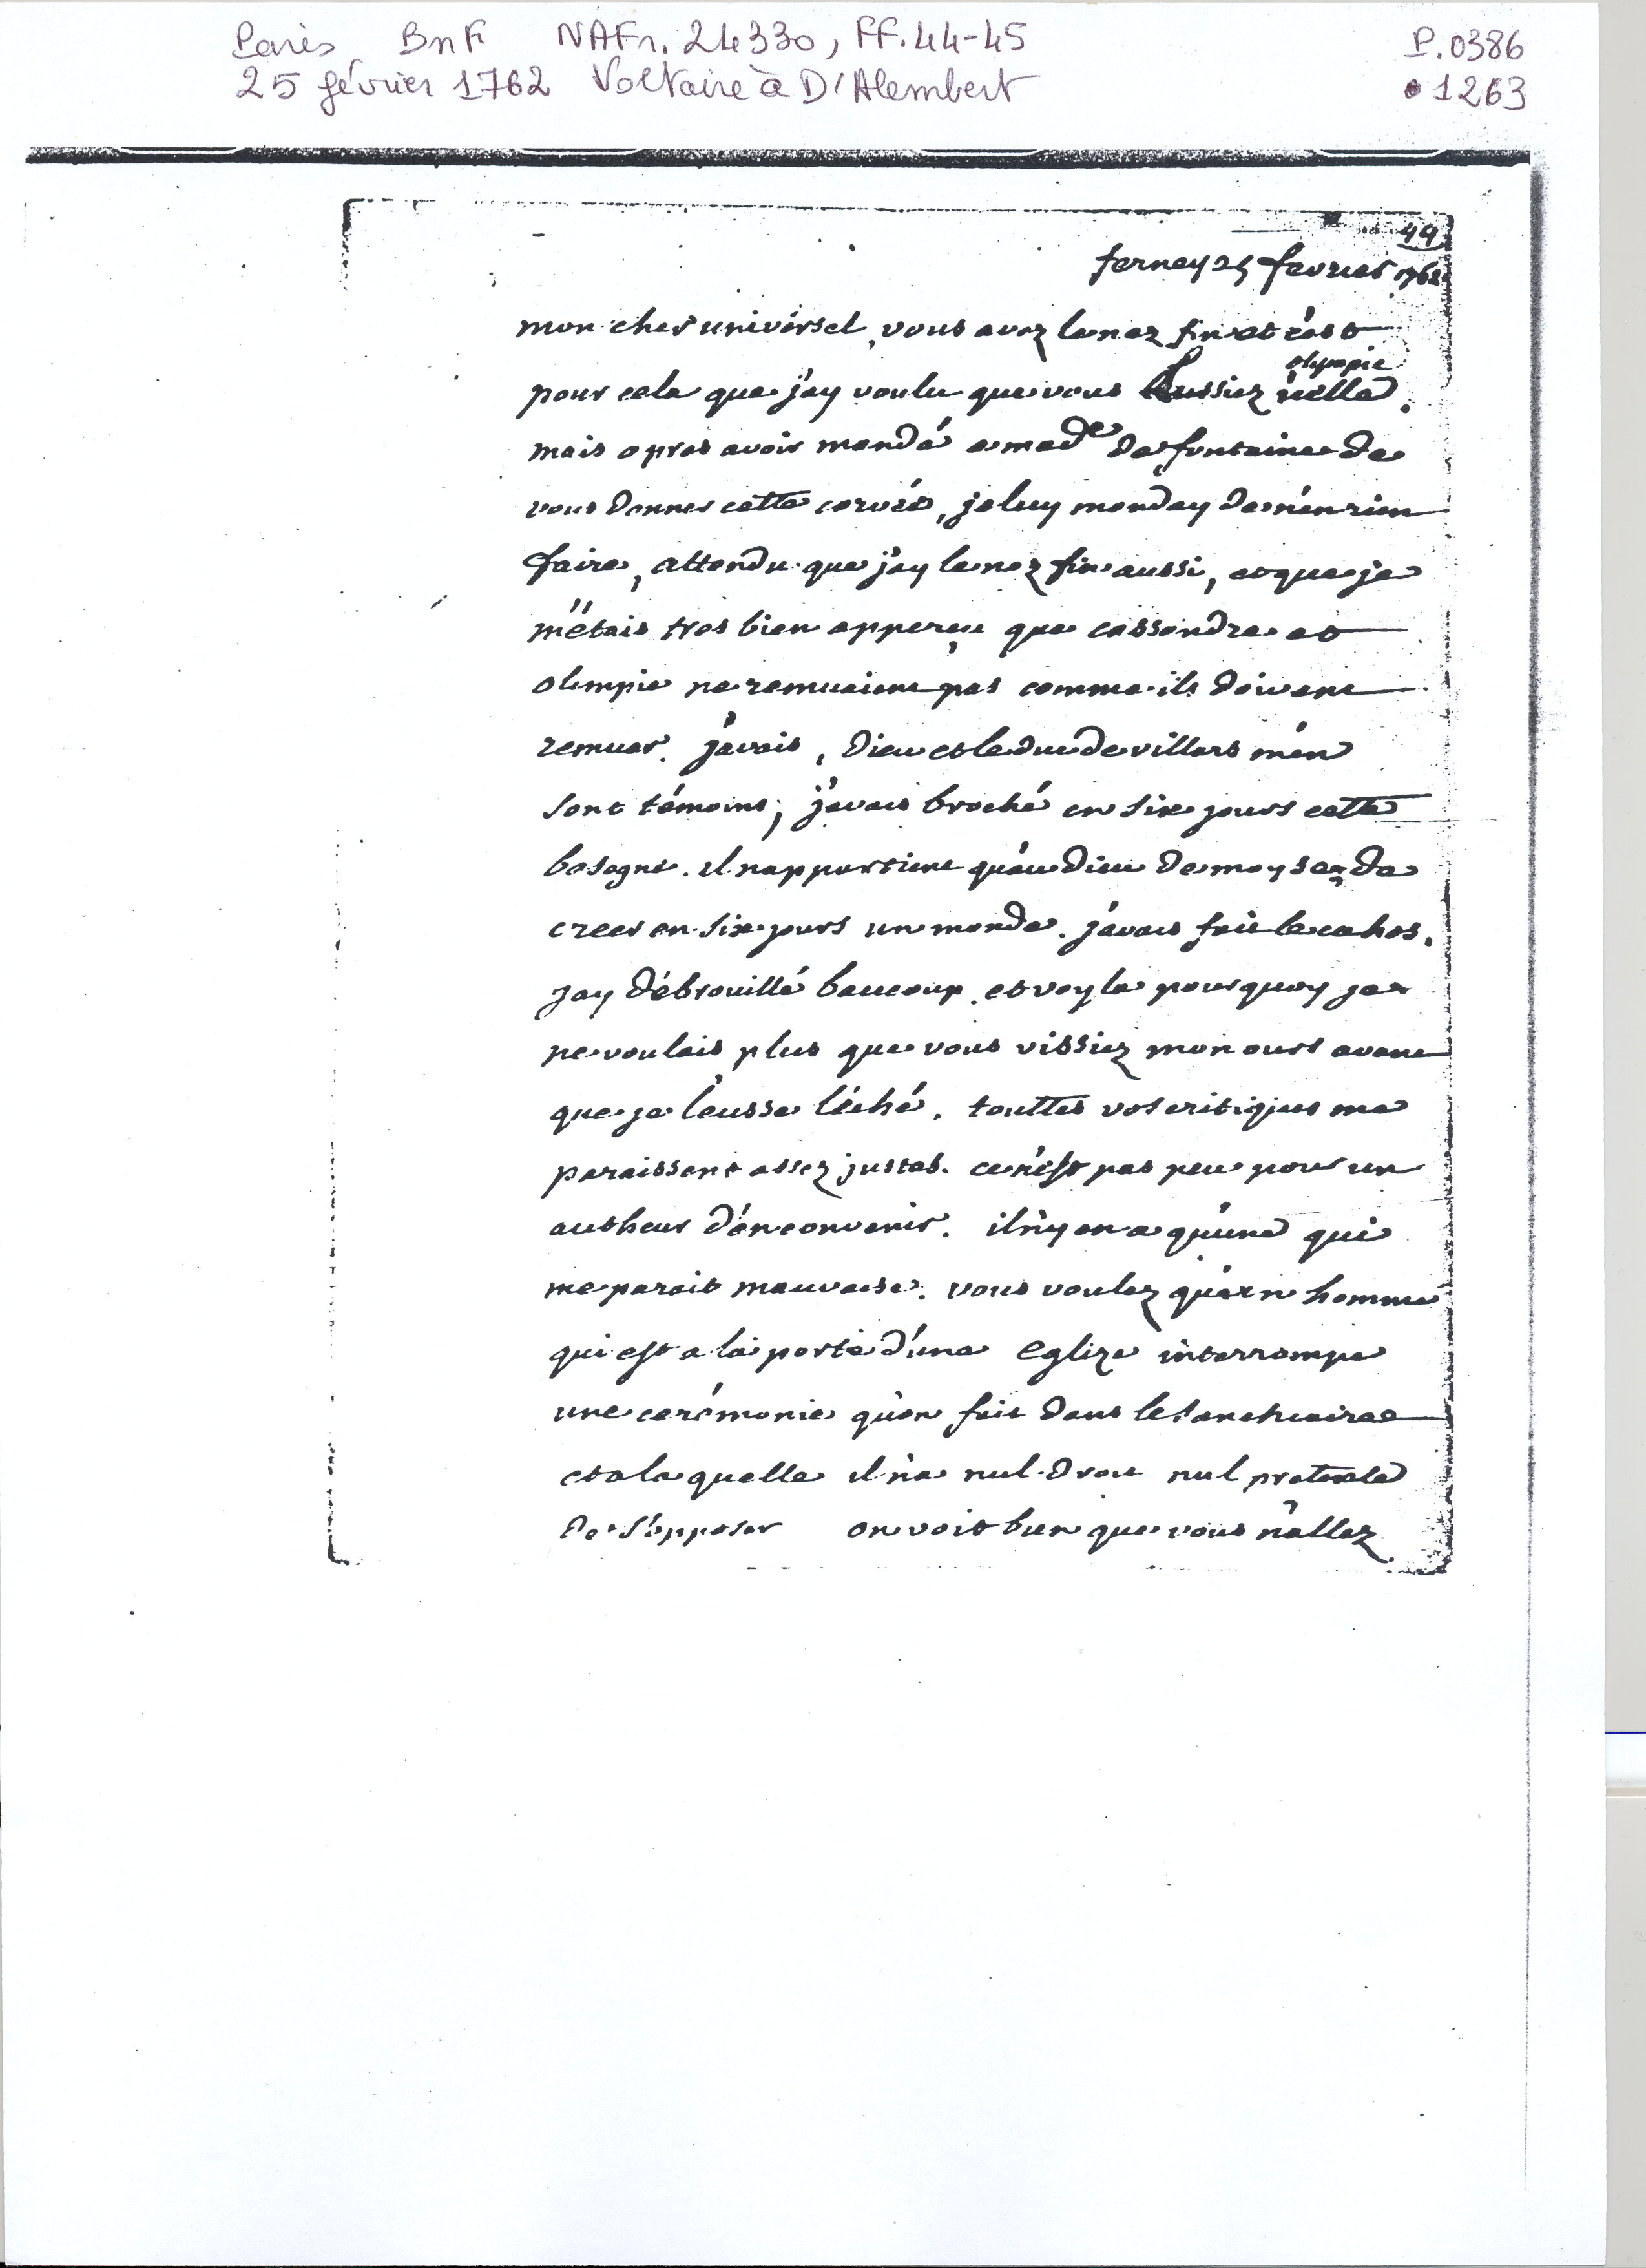 Paris BnF NAFr. 24330, FF. 44-45
P. 0386
25 février 1762 Voltaire à D'Alembert
1263
44
ferney 25 fevrier 1762
mon cher universel, vous avez le nez fin et c'est
olympie
pour cela que j'ay voulu que vous lussiez
mais apres avoir mandé a made de fontaine de
vous donner cette corvée, je luy manday de n'en rien
faire, attendu que j'ay le nez fin aussi, et que je
m'étais tres bien apperçu que cassandre et
olimpie ne remuaient pas comme ils doivent
remuer. j'avais, dieu et le duc de villars m'en
sont témoins, j'avais broché en six jours cette
besogne. il n'appartient qu'au dieu de moyse de
creer en six jours un monde. j'avais fait le cahos.
jay débrouillé baucoup, et voyla pourquoy je
ne voulais plus que vous vissiez mon ours avant
que je l'eusse léché. touttes vos critiques me
paraissent assez justes. ce n'est pas peu pour un
autheur d'en convenir. il n'y en a qu'une qui
me parait mauvaise. vous voulez qu'un homme
qui est a la porte d'une eglize interrompe
une cerémonie qu'on fait dans le sanctuaire
et a la quelle il n'a nul droit nul pretexte
de s'opposer on voit bien que vous n'allez